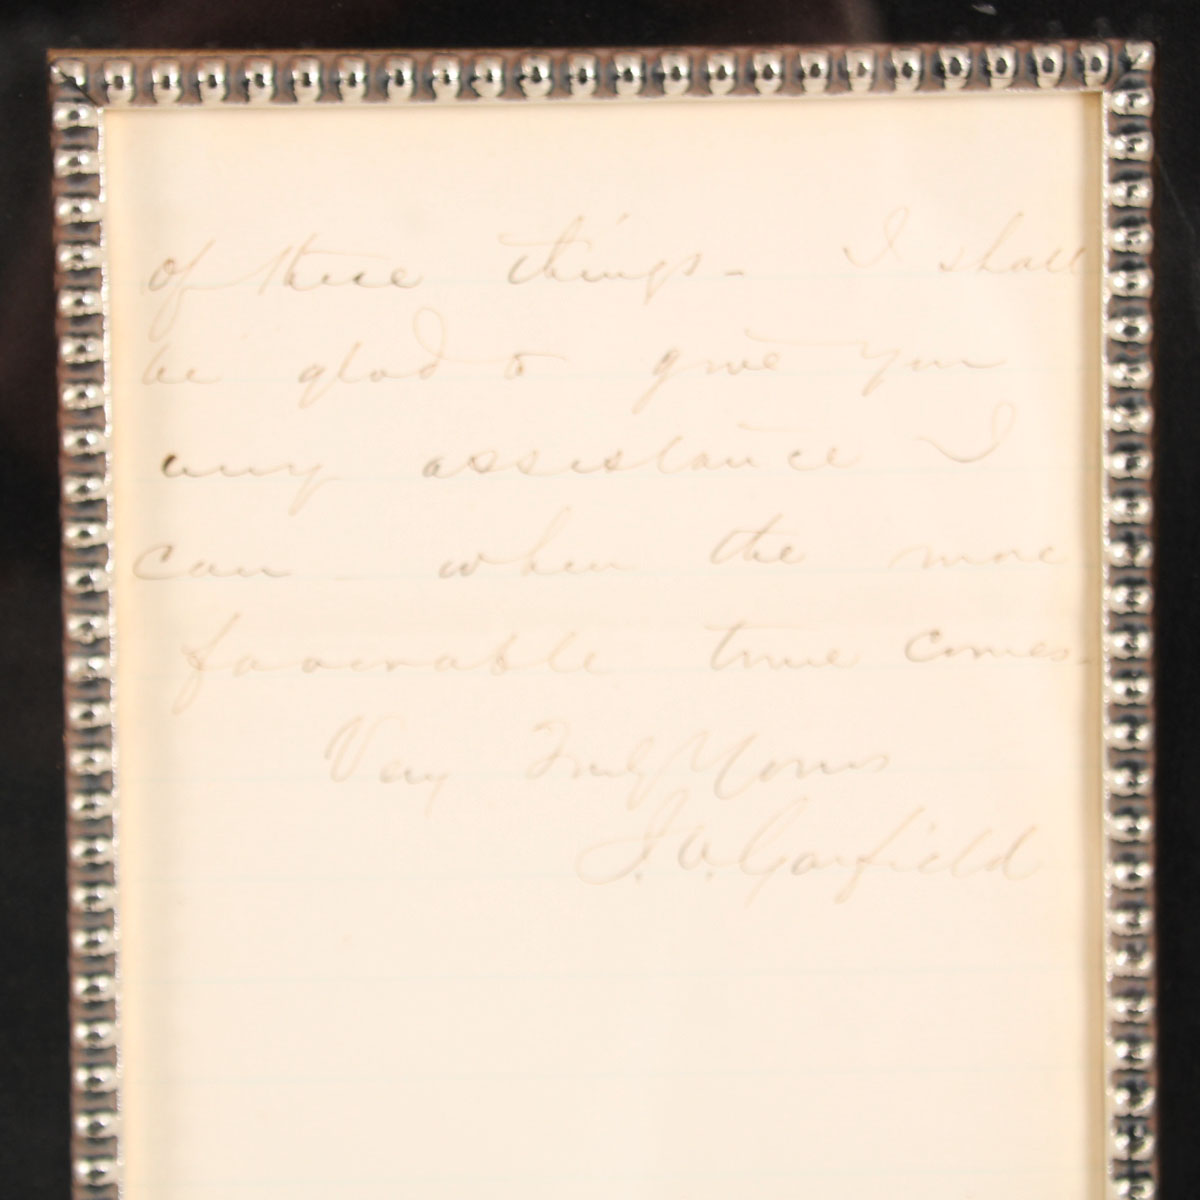 of these things - I shall
be glad to give you
any assistance I
can - when the more
favorable time comes.
Very Truly Yours
J. A. Garfield